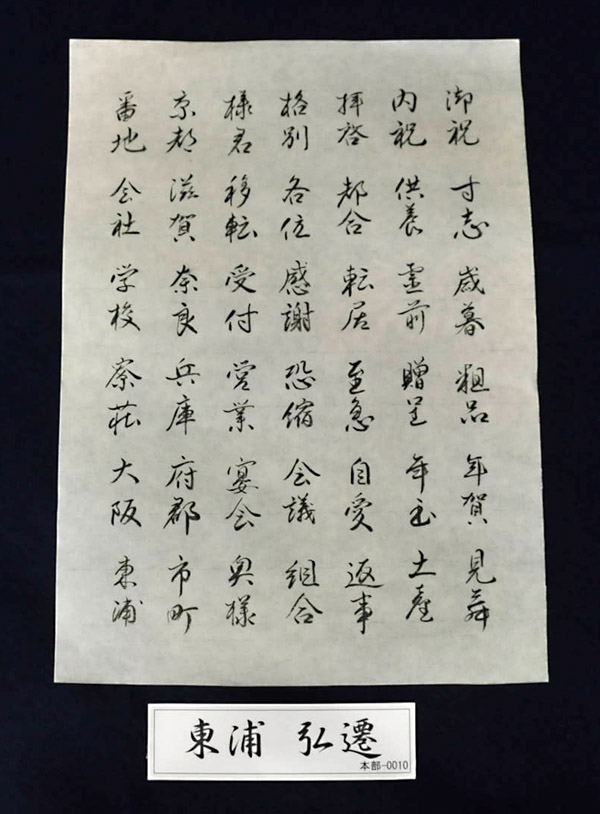 御祝 寸志 歳暮 粗品 年賀 見舞
内祝 供養 霊前 贈呈 年玉 土産
拝啓 都合 転居 至急 自愛 返事
格別 各位 感謝 恐縮 会議 組合
様君 移転 受付 営業 宴会 奥様
京都 滋賀 奈良 兵庫 府郡 市町
番地 会社 学校 寮荘 大阪 東浦
東浦 弘遷
本部-0010